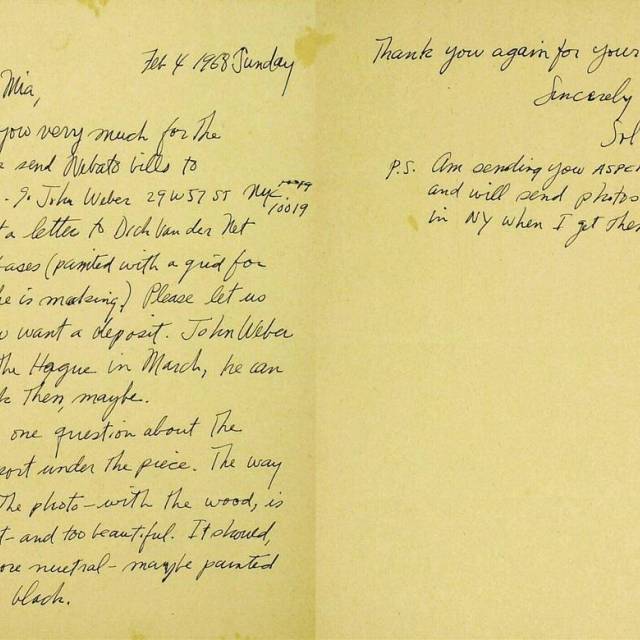 Feb 4 1968 Sunday
Mia,
you very much for the
send Nebato bills to
. % John Weber 29 W 57 ST NYC 10019
10019
a letter to Dick Van der Net
bases (painted with a grid for
he is making) Please let us
want a deposit. John Weber
the Hague in March, he can
then, maybe.
one question about the
port under the piece. The way
The photo - with the wood, is
- and too beautiful. It should,
ore nuetral - maybe painted
black.
Thank you again for your
Sincerely
Sol
P.S. Am sending you ASPE
and will send photos
in NY when I get the